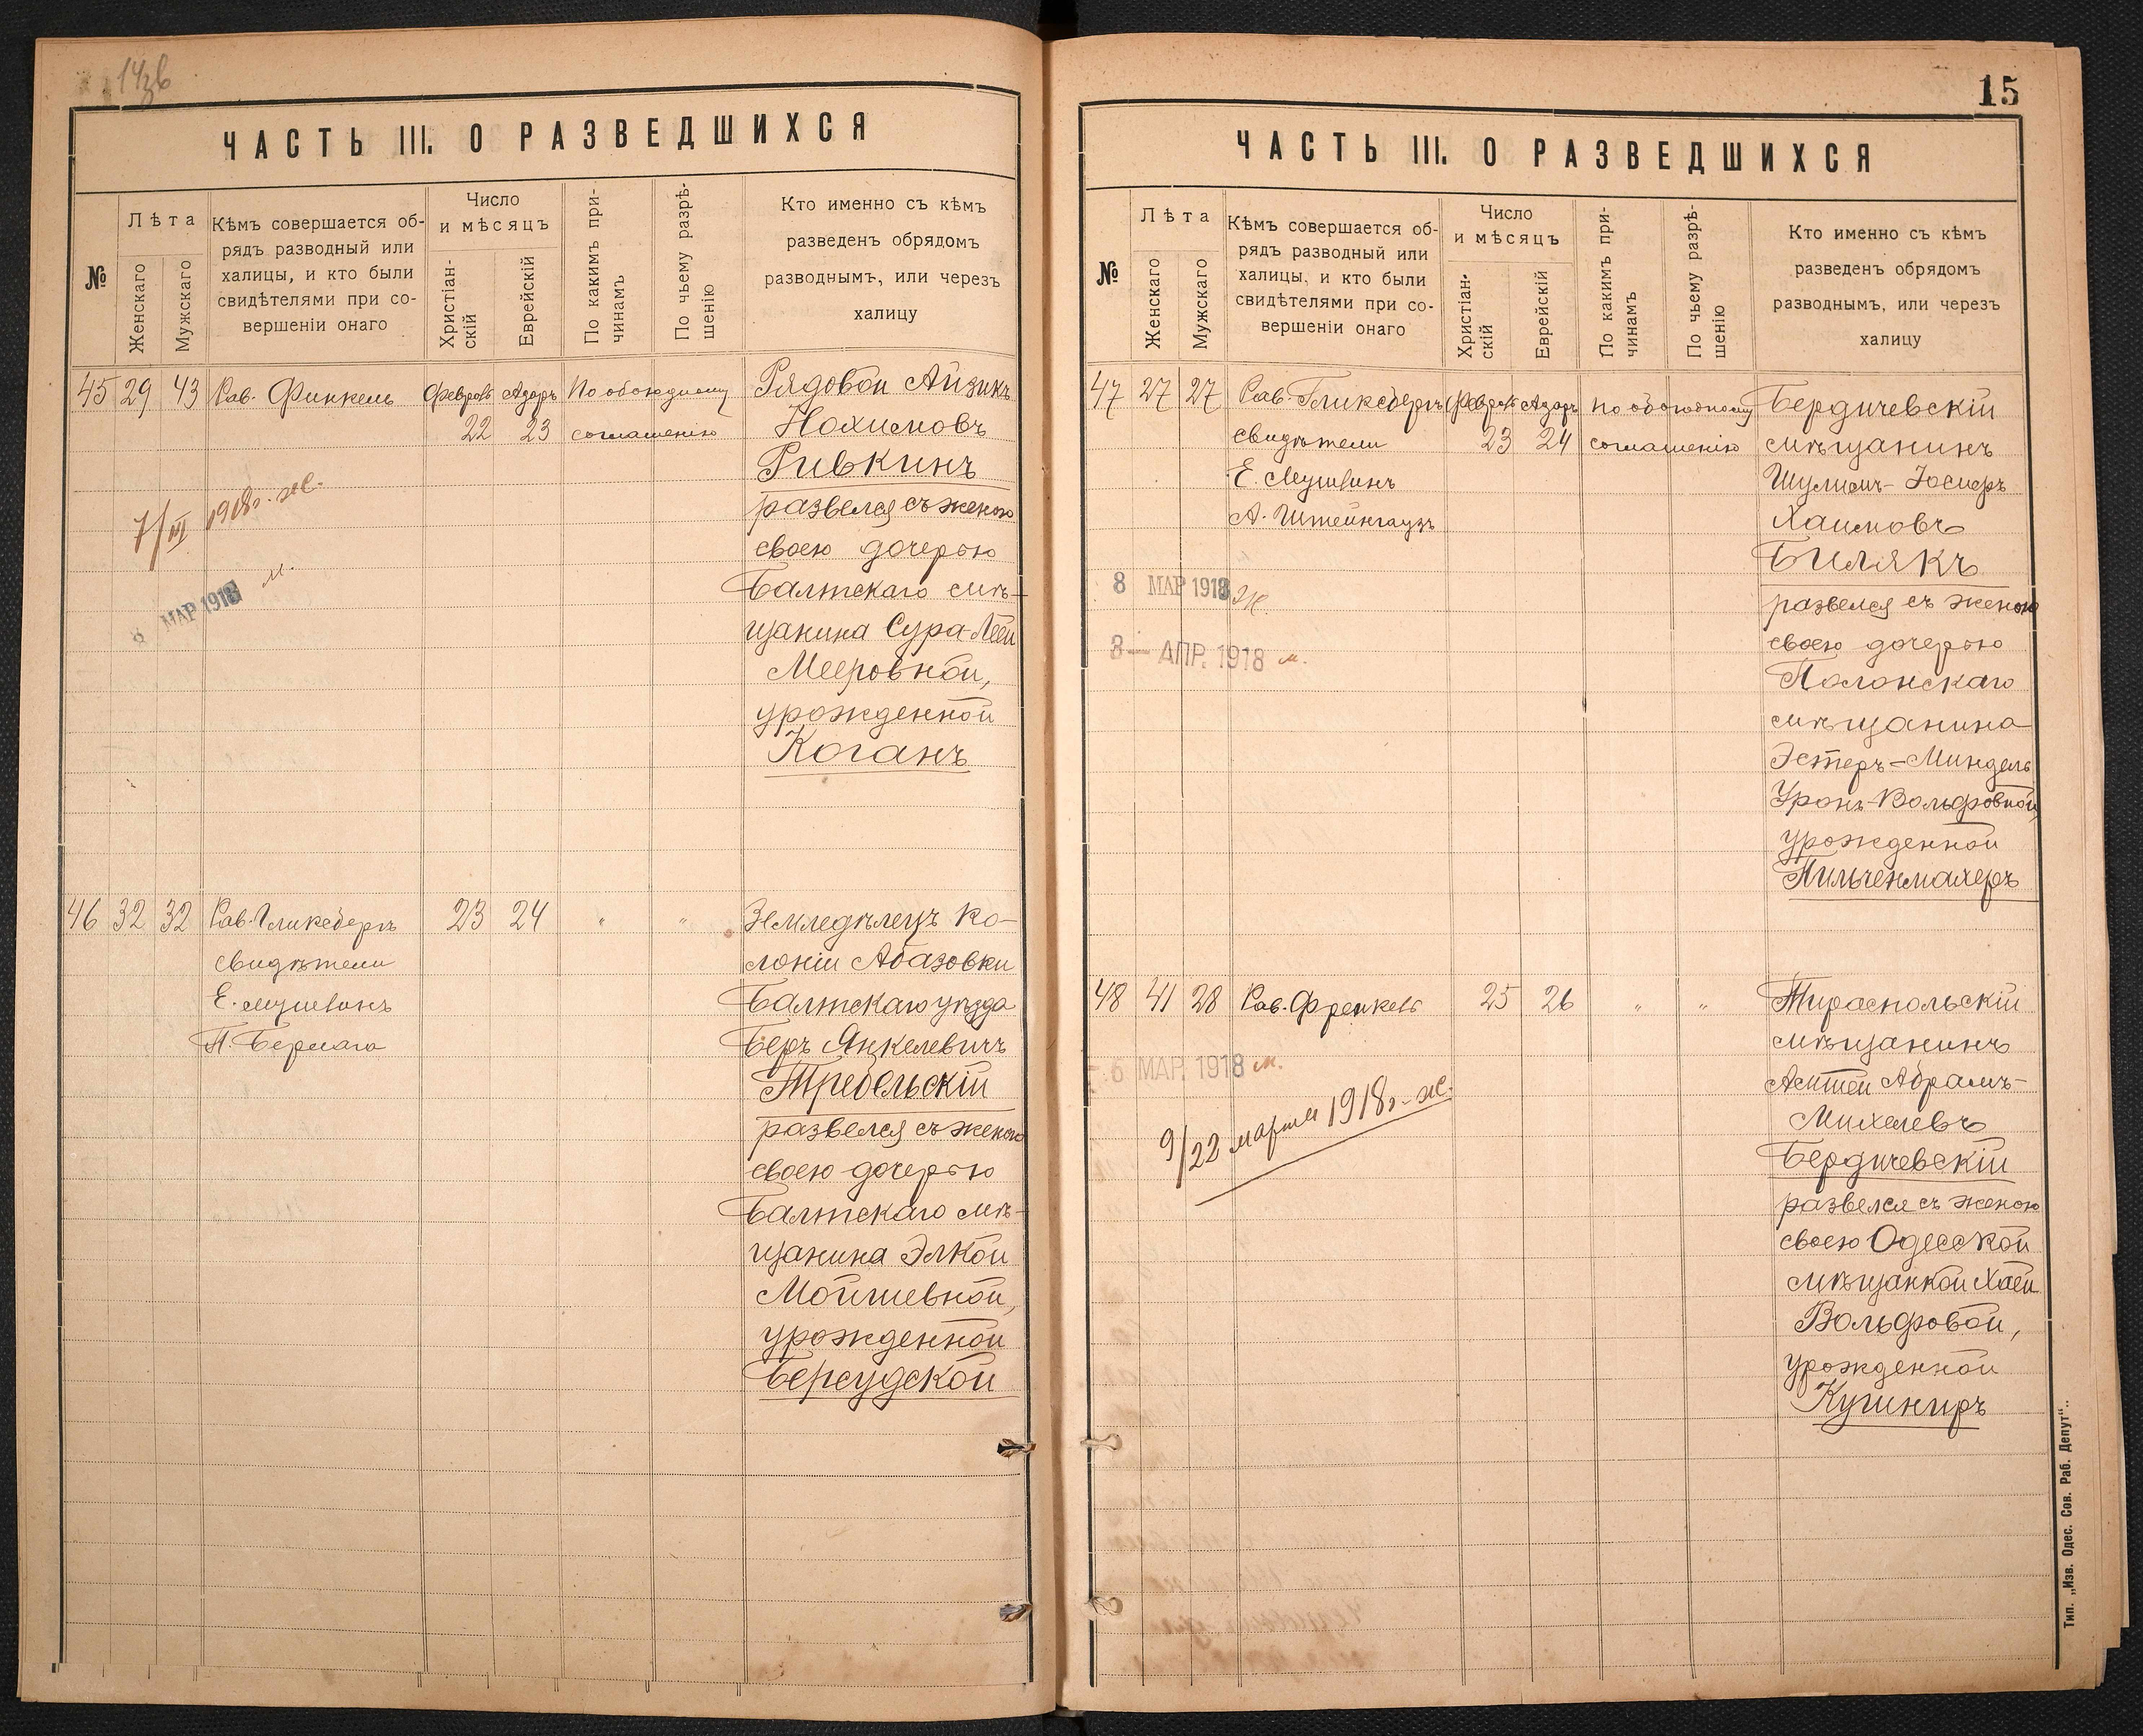 ЧАСТЬ III. О РАЗВЕДШИХСЯ
№
Лѣта
Женскаго
Мужскаго
Кѣмъ совершается об-
рядъ разводный или
халицы, и кто были
свидѣтелями при со-
вершеніи онаго
Число
и мѣсяцъ
Христіан-
скій
Еврейскій
По какимъ при-
чинамъ
По чьему разрѣ-
шенію
Кто именно съ кѣмъ
разведенъ обрядомъ
разводнымъ, или черезъ
халицу
45 29 43 Рав. Финкель
Февраль Адаръ
22 23
По обоюдному
соглашенію
Рядовой Айзикъ
Нохимовъ
Ривкинъ
развелся съ женою
своею дочерью
Балтскаго мѣ-
щанина Сура-Леей
Мееровной,
урожденной
Коганъ
7/III 1918г. ж.
8 МАР 1918 м.
46 32 32 Рав. Гликсбергъ
свидѣтели
23 24 " "
Земледѣлецъ ко-
лоніи Абазовки
Балтскаго уѣзда
Беръ Янкелевичъ
развелся съ женою
своею дочерью
Балтскаго мѣ-
щанина Элкой
Мойшевной,
урожденной
Берсудской
15
ЧАСТЬ III. О РАЗВЕДШИХСЯ
№
Лѣта
Женскаго
Мужскаго
Кѣмъ совершается об-
рядъ разводный или
халицы, и кто были
свидѣтелями при со-
вершеніи онаго
Число
и мѣсяцъ
Христіан-
скій
Еврейскій
По какимъ при-
чинамъ
По чьему разрѣ-
шенію
Кто именно съ кѣмъ
разведенъ обрядомъ
разводнымъ, или черезъ
халицу
47 27 27 Рав. Гликсбергъ
свидѣтели
А. Штейнгаузъ
Февраль Адаръ
23 24
по обоюдному
соглашенію
Бердичевскій
мѣщанинъ
Шулимъ-Іосифъ
Хаимовъ
Билякъ
развелся съ женою
своею дочерью
Полонскаго
мѣщанина
Эстеръ-Миндель
Уронъ-Вольфовной,
урожденной
8 МАР 1918 ж.
3- АПР. 1918 м.
48 41 28 Рав. Френкель
25 26 " "
Тираспольскій
мѣщанинъ
Абрамъ-
Михелевъ
Бердичевскій
развелся съ женою
своею Одесской
мѣщанкой Хаей
Вольфовой,
урожденной
Кушниръ
6 МАР. 1918 м.
9/22 марта 1918г. ж.
Тип. „Изв. Одес. Сов. Раб. Депут“..